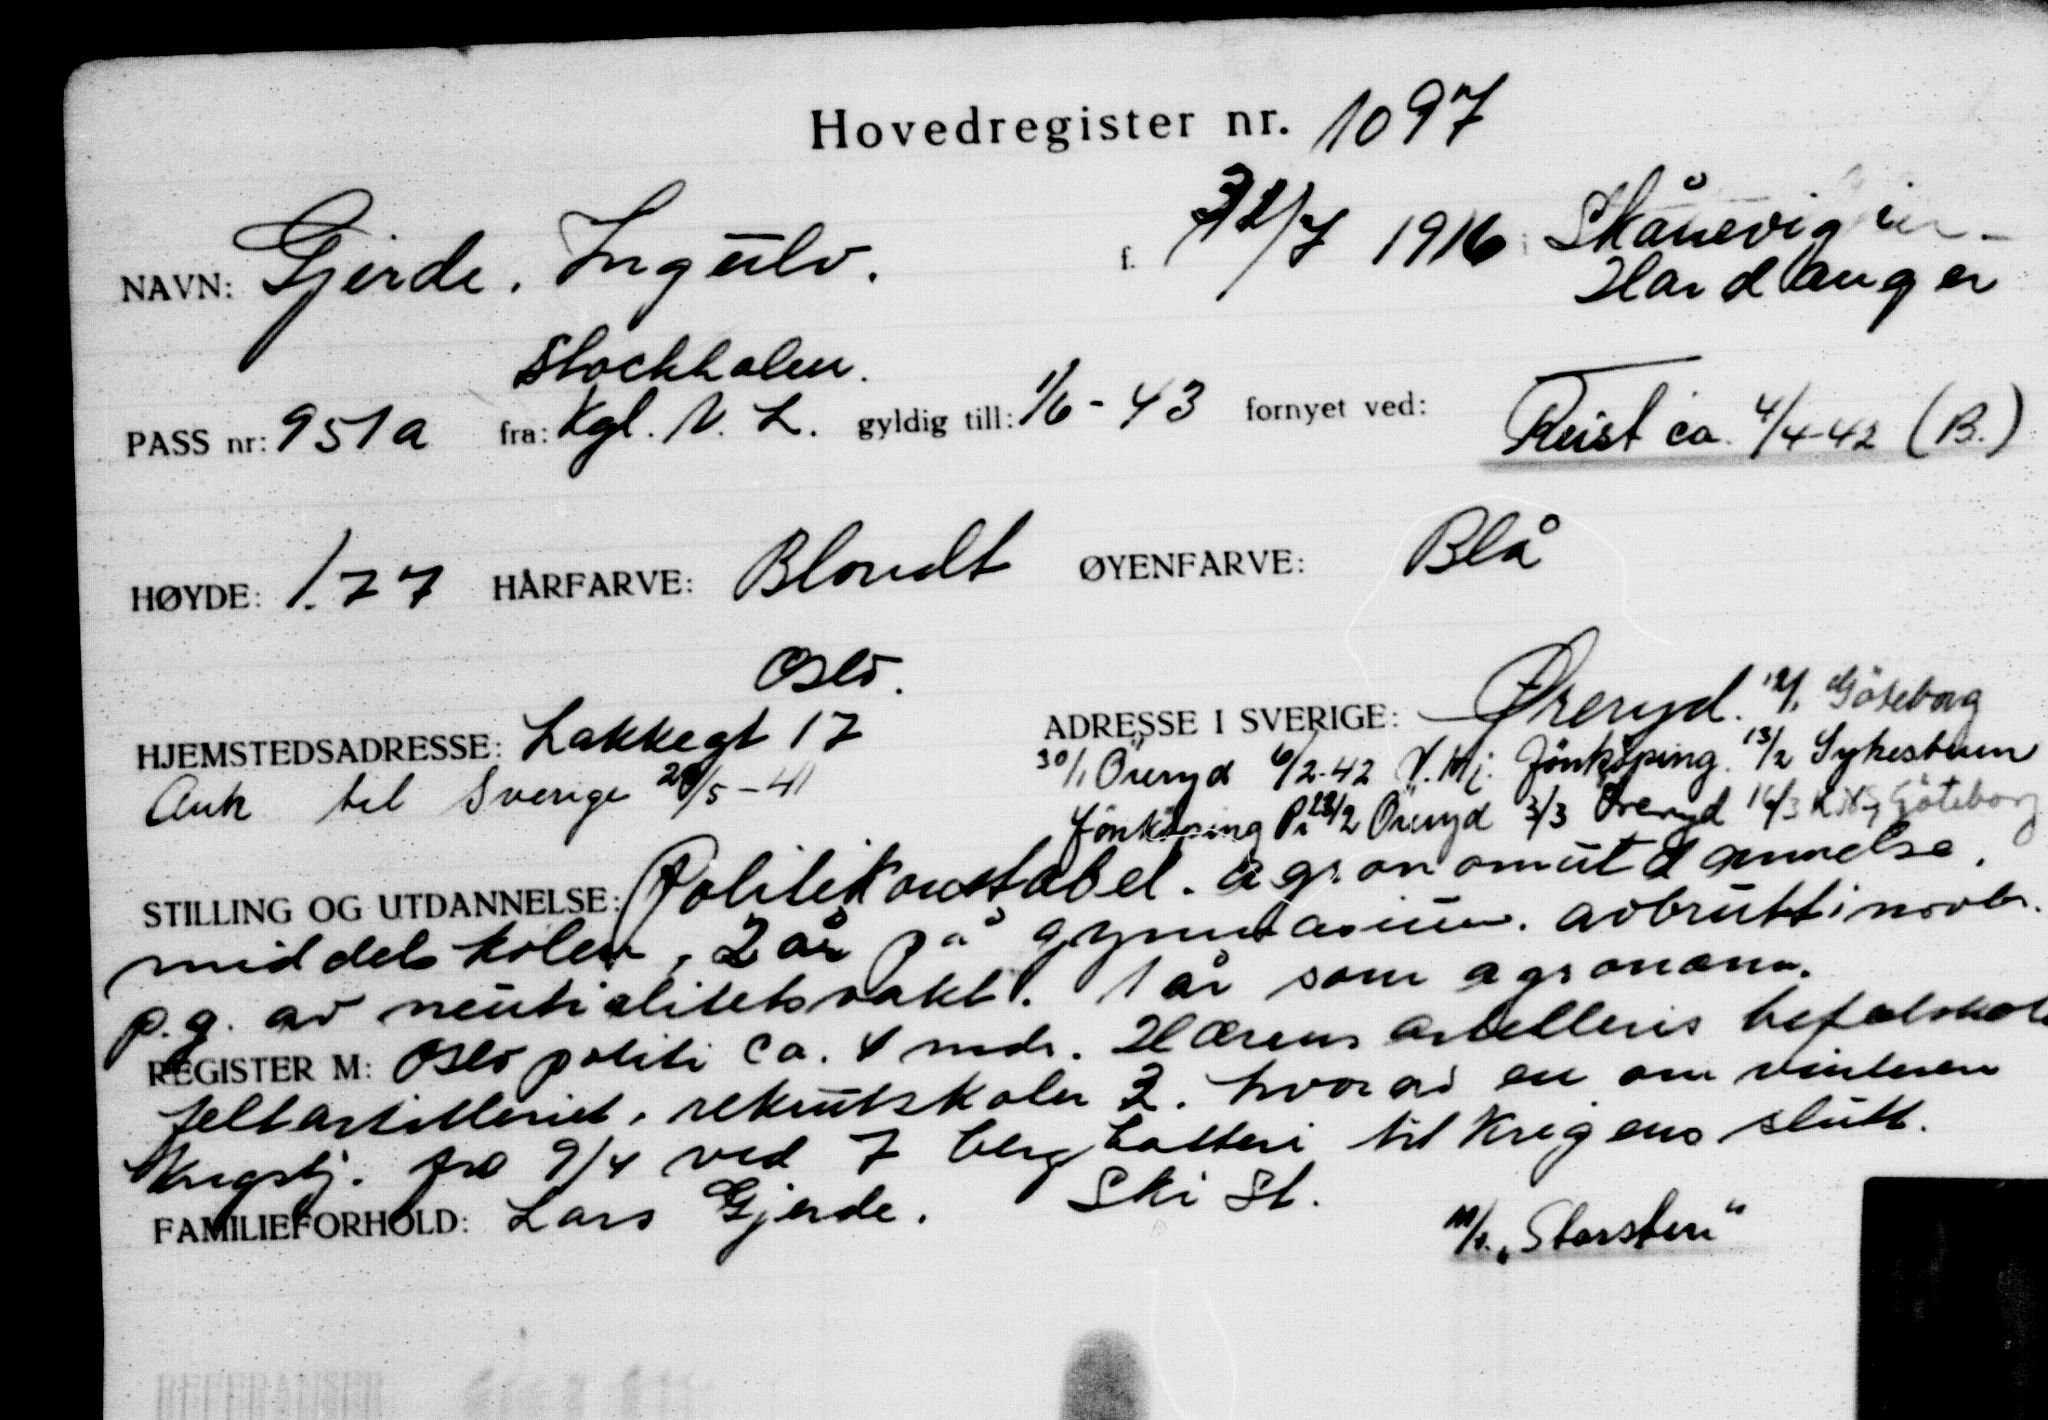 Hovedregister nr. 1097
NAVN: Gjerde, Ingulv. f. /7 1916 Skånevig i
Hardanger
Stockholm.
PASS nr: 951a fra: Kgl. N. L. gyldig till: 1/6-43 fornyet ved:
Reist ca. 4/4-42 (B.)
HØYDE: 1.77 HÅRFARVE: Blondt ØYENFARVE: Blå
Oslo.
HJEMSTEDSADRESSE: Lakkegt 17
Ank til Sverige 28/5-41
ADRESSE I SVERIGE: Øreryd. 12/1 Göteborg
30/1 Öreryd 6/2-42 V. Mj. Jönköping. 13/2 Sykestuen
Jönköping 23/2 Öreryd 3/3 Öreryd 16/3 Göteborg
STILLING OG UTDANNELSE: Politikonstabel. agronomutdannelse.
middelskolen, 2 år på gymnasium. avbrutt i novbr.
p.g. av neutralitetsvakt. 1 år som agronom.
REGISTER M: Oslo politi ca. 4 mdr. Hærens artelleris befalskole
feltartilleriet, rekrutskoler 2. hvorav en om vinteren
Krigstj. fra 9/4 ved 7 bergbatteri til Krigens slutt.
FAMILIEFORHOLD: Lars Gjerde. Ski St.
"Storsten"